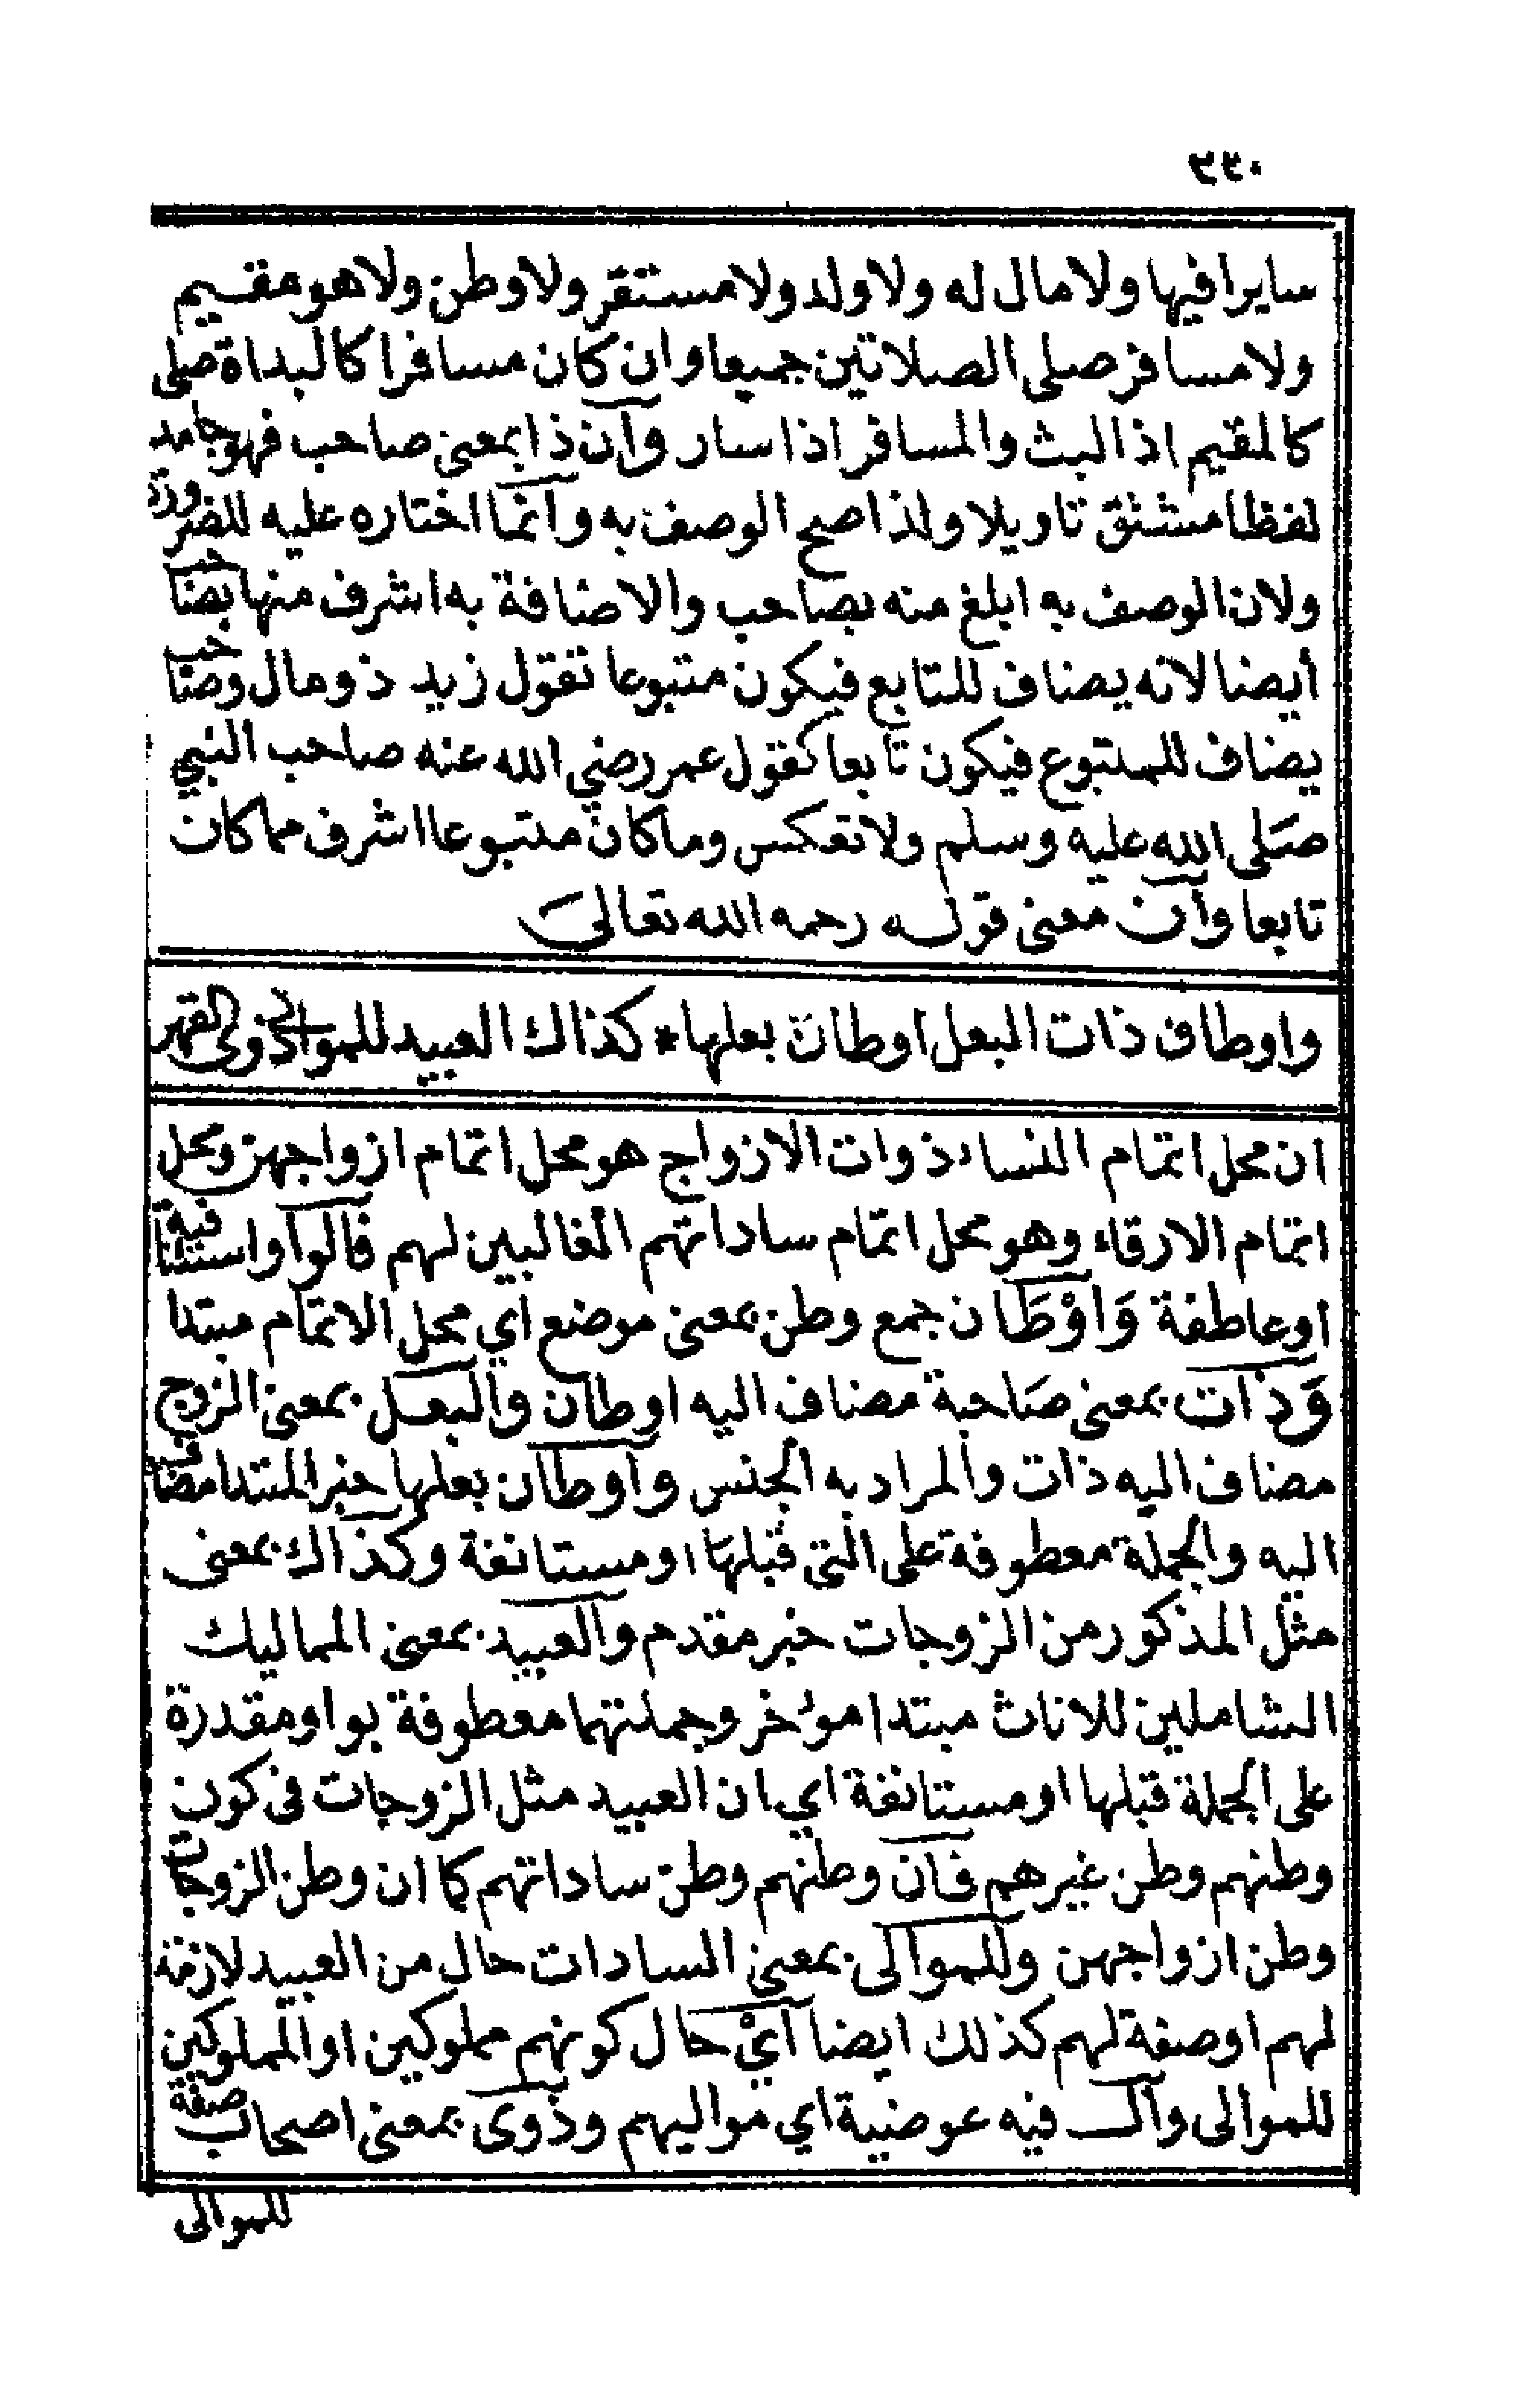 ٢٤٠
سايرا فيها ولا مال له ولا ولد ولا مستقر ولا وطن ولا هو مقيم
ولا مسافر صلى الصلاتين جميعا وان كان مسافرا كالبداة صلى
كالمقيم اذا لبث والمسافر اذا سار وان ذا بمعنى صاحب فهو جامد
لفظا مشتق تاويلا ولذا صح الوصف به وانما اختاره عليه للضرورة
ولان الوصف به ابلغ منه بصاحب والاضافة به اشرف منها بصاحب
أيضا لانه يضاف للتابع فيكون متبوعا تقول زيد ذو مال وصاحب
يضاف للمتبوع فيكون تابعا كقول عمر رضي الله عنه صاحب النبي
صلى الله عليه وسلم ولا تعكس وما كان متبوعا اشرف مما كان
تابعا وان معنى قوله رحمه الله تعالى
واوطان ذات البعل اوطان بعلها * كذاك العبيد للموالى ذوى القهر
ان محل اتمام النساء ذوات الازواج هو محل اتمام ازواجهن ومحل
اتمام الارقاء وهو محل اتمام ساداتهم الغالبين لهم فالواو استئنافية
او عاطفة وَاوْطَان جمع وطن بمعنى موضع اي محل الاتمام مبتدا
وذات بمعنى صاحبة مضاف اليه اوطان والبعل بمعنى الزوج
مضاف اليه ذات والمراد به الجنس واوطان بعلها خبر المبتدا مضاف
اليه والجملة معطوفة على التي قبلها او مستانفة وكذاك بمعنى
مثل المذكور من الزوجات خبر مقدم والعبيد بمعنى المماليك
الشاملين للاناث مبتدا موٴخر وجملتهما معطوفة بواو مقدرة
على الجملة قبلها او مستانفة اي ان العبيد مثل الزوجات فى كون
وطنهم وطن غيرهم فان وطنهم وطن ساداتهم كما ان وطن الزوجات
وطن ازواجهن وللموالى بمعنى السادات حال من العبيد لازمة
لهم او صفة لهم كذلك ايضا اي حال كونهم مملوكين او المملوكين
للموالى وال فيه عوضية اي مواليهم وذوى بمعنى اصحاب صفة
للموالى